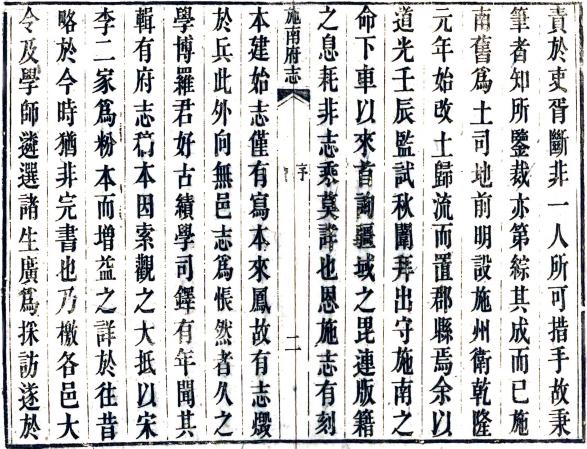 責於吏胥斷非一人所可措手故秉
筆者知所鑒裁亦第綜其成而已施
南舊爲土司地前明設施州衛乾隆
元年始改土歸流而置郡縣焉余以
道光壬辰監試秋闈拜出守施南之
命下車以來首詢疆域之毘連版籍
之息耗非志乘莫詳也恩施志有刻
施南府志
序
二
本建始志僅有寫本來鳳故有志燬
於兵此外向無邑志爲悵然者久之
學博羅君好古績學司鐸有年聞其
輯有府志稿本因索觀之大抵以宋
李二家爲粉本而增益之詳於往昔
略於今時猶非完書也乃檄各邑大
令及學師遴選諸生廣爲採訪遂於